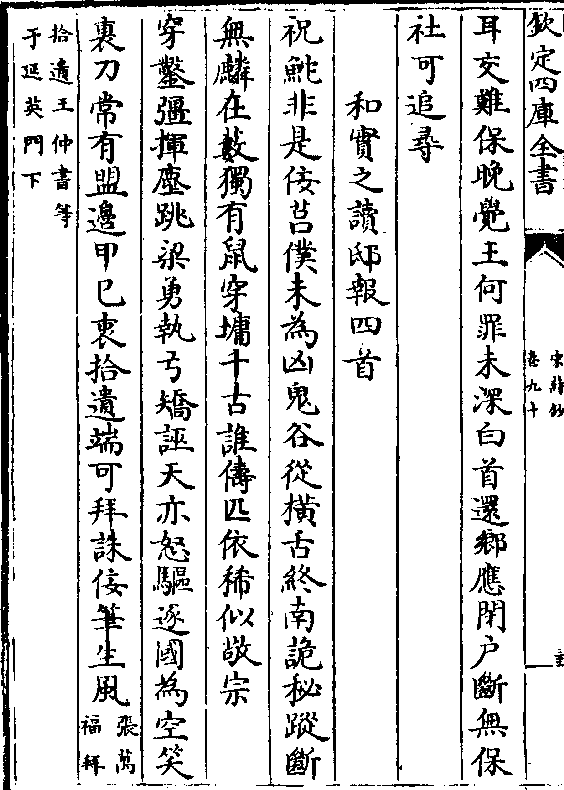 欽定四庫全書
宋詩鈔
卷九十
耳交難保晚覺王何罪未深白首還鄉應閉户斷無保
社可追尋
和實之讀邸報四首
祝鮀非是佞莒僕未為凶鬼谷從橫舌終南詭秘蹤斷
無麟在藪獨有鼠穿墉千古誰儔匹依稀似敬宗
穿鑿彊揮麈跳梁勇執弓矯誣天亦怒驅逐國為空笑
裏刀常有盟邊甲已衷拾遺端可拜誅佞筆生風
張萬
福拜
拾遺王仲書等
于延英門下